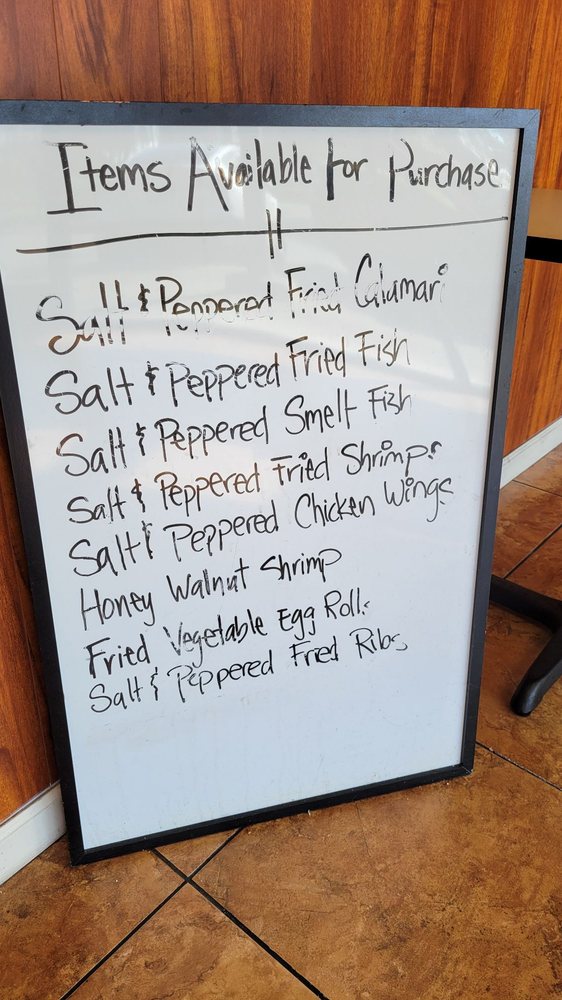 Items Available for Purchase
Salt & Peppered Fried Calamari
Salt & Peppered Fried Fish
Salt & Peppered Smelt Fish
Salt & Peppered Fried Shrimps
Salt & Peppered Chicken Wings
Honey Walnut Shrimp
Fried Vegetable Egg Rolls
Salt & Peppered Fried Ribs